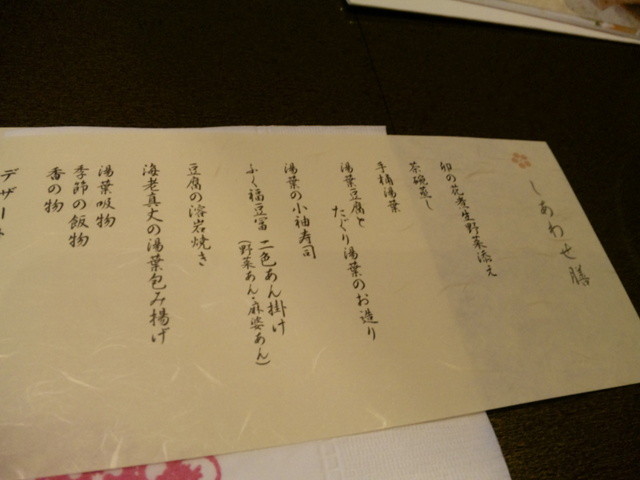 しあわせ膳
卯の花考生野菜添え
茶碗蒸し
手桶湯葉
湯葉豆腐と
たぐり湯葉のお造り
湯葉の小袖寿司
ふく福豆冨 二色あん掛け
(野菜あん・麻婆あん)
豆腐の溶岩焼き
海老真丈の湯葉包み揚げ
湯葉吸物
季節の飯物
香の物
デザート